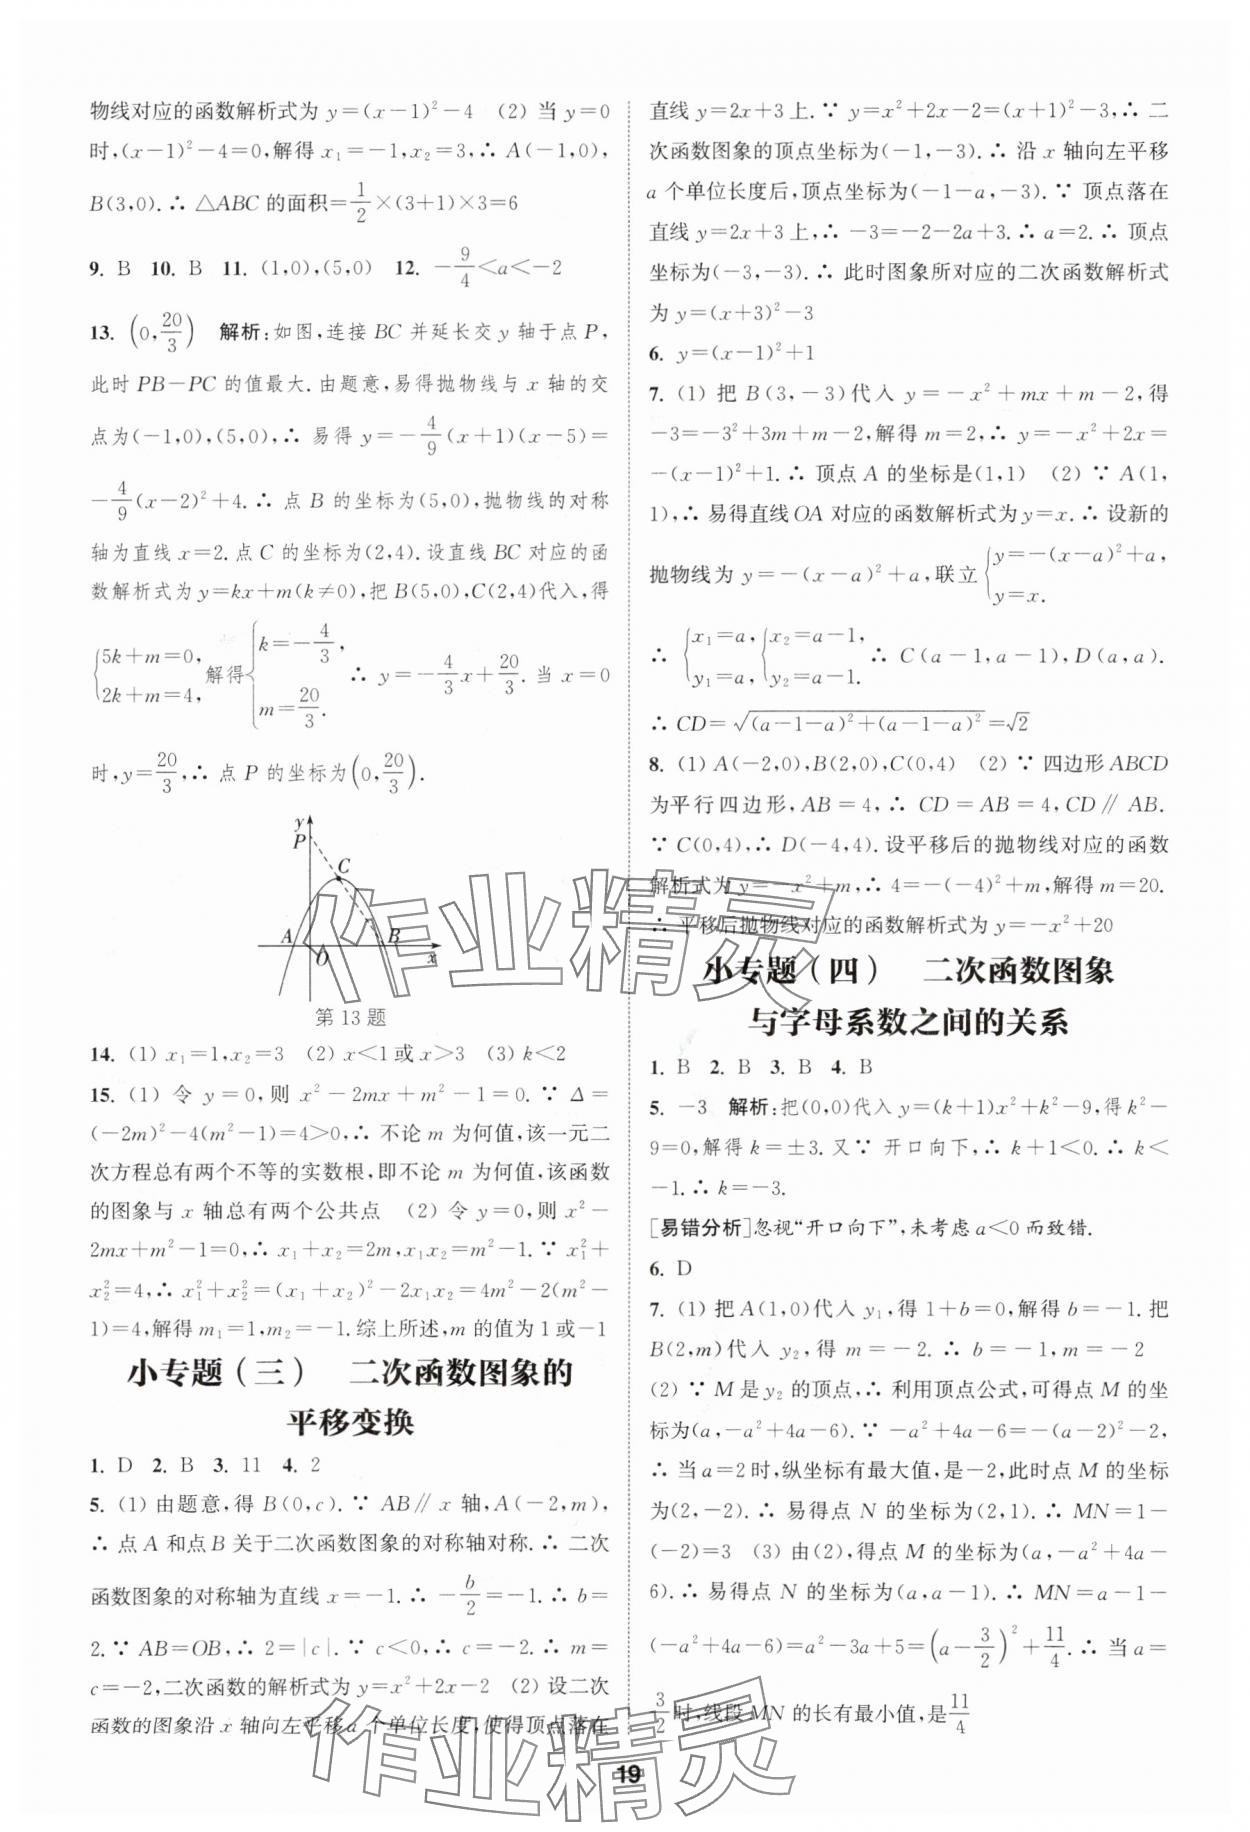 物线对应的函数解析式为 y=(x-1)²-4 (2) 当 y=0
时,(x-1)²-4=0,解得 x₁=-1,x₂=3,∴ A(-1,0),
B(3,0).∴ △ABC 的面积=1/2×(3+1)×3=6
9. B 10. B 11. (1,0),(5,0) 12. -9/4<a<-2
13. (0,20/3) 解析:如图,连接 BC 并延长交 y 轴于点 P,
此时 PB-PC 的值最大.由题意,易得抛物线与 x 轴的交
点为(-1,0),(5,0),∴ 易得 y=-4/9(x+1)(x-5)=
-4/9(x-2)²+4.∴ 点 B 的坐标为(5,0),抛物线的对称
轴为直线 x=2.点 C 的坐标为(2,4).设直线 BC 对应的函
数解析式为 y=kx+m(k≠0),把 B(5,0),C(2,4)代入,得
{5k+m=0, 2k+m=4, 解得{k=-4/3, m=20/3. ∴ y=-4/3x+20/3.当 x=0
时,y=20/3,∴ 点 P 的坐标为(0,20/3).
y
P
C
A
O
B
x
第 13 题
14. (1) x₁=1,x₂=3 (2) x<1 或 x>3 (3) k<2
15. (1) 令 y=0,则 x²-2mx+m²-1=0.∵ Δ=
(-2m)²-4(m²-1)=4>0,∴ 不论 m 为何值,该一元二
次方程总有两个不等的实数根,即不论 m 为何值,该函数
的图象与 x 轴总有两个公共点 (2) 令 y=0,则 x²-
2mx+m²-1=0,∴ x₁+x₂=2m,x₁x₂=m²-1.∵ x₁²+
x₂²=4,∴ x₁²+x₂²=(x₁+x₂)²-2x₁x₂=4m²-2(m²-
1)=4,解得 m₁=1,m₂=-1.综上所述,m 的值为 1 或-1
小专题(三) 二次函数图象的
平移变换
1. D 2. B 3. 11 4. 2
5. (1) 由题意,得 B(0,c).∵ AB∥x 轴,A(-2,m),
∴ 点 A 和点 B 关于二次函数图象的对称轴对称.∴ 二次
函数图象的对称轴为直线 x=-1.∴ -b/2=-1.∴ b=
2.∵ AB=OB,∴ 2=|c|.∵ c<0,∴ c=-2.∴ m=
c=-2,二次函数的解析式为 y=x²+2x-2 (2) 设二次
函数的图象沿 x 轴向左平移 a 个单位长度,使得顶点落在
直线 y=2x+3 上.∵ y=x²+2x-2=(x+1)²-3,∴ 二
次函数图象的顶点坐标为(-1,-3).∴ 沿 x 轴向左平移
a 个单位长度后,顶点坐标为(-1-a,-3).∵ 顶点落在
直线 y=2x+3 上,∴ -3=-2-2a+3.∴ a=2.∴ 顶点
坐标为(-3,-3).∴ 此时图象所对应的二次函数解析式
为 y=(x+3)²-3
6. y=(x-1)²+1
7. (1) 把 B(3,-3)代入 y=-x²+mx+m-2,得
-3=-3²+3m+m-2,解得 m=2,∴ y=-x²+2x=
-(x-1)²+1.∴ 顶点 A 的坐标是(1,1) (2) ∵ A(1,
1),∴ 易得直线 OA 对应的函数解析式为 y=x.∴ 设新的
抛物线为 y=-(x-a)²+a,联立{y=-(x-a)²+a, y=x.
∴ {x₁=a, y₁=a, {x₂=a-1, y₂=a-1. ∴ C(a-1,a-1),D(a,a).
∴ CD=√((a-1-a)²+(a-1-a)²)=√2
8. (1) A(-2,0),B(2,0),C(0,4) (2) ∵ 四边形 ABCD
为平行四边形,AB=4,∴ CD=AB=4,CD∥AB.
∵ C(0,4),∴ D(-4,4).设平移后的抛物线对应的函数
解析式为 y=-x²+m,∴ 4=-(-4)²+m,解得 m=20.
∴ 平移后抛物线对应的函数解析式为 y=-x²+20
小专题(四) 二次函数图象
与字母系数之间的关系
1. B 2. B 3. B 4. B
5. -3 解析:把(0,0)代入 y=(k+1)x²+k²-9,得 k²-
9=0,解得 k=±3.又∵ 开口向下,∴ k+1<0.∴ k<
-1.∴ k=-3.
[易错分析]忽视“开口向下”,未考虑 a<0 而致错.
6. D
7. (1) 把 A(1,0)代入 y₁,得 1+b=0,解得 b=-1.把
B(2,m)代入 y₂,得 m=-2.∴ b=-1,m=-2
(2) ∵ M 是 y₂ 的顶点,∴ 利用顶点公式,可得点 M 的坐
标为(a,-a²+4a-6).∵ -a²+4a-6=-(a-2)²-2,
∴ 当 a=2 时,纵坐标有最大值,是-2,此时点 M 的坐标
为(2,-2).∴ 易得点 N 的坐标为(2,1).∴ MN=1-
(-2)=3 (3) 由(2),得点 M 的坐标为(a,-a²+4a-
6).∴ 易得点 N 的坐标为(a,a-1).∴ MN=a-1-
(-a²+4a-6)=a²-3a+5=(a-3/2)²+11/4.∴ 当 a=
3/2 时,线段 MN 的长有最小值,是11/4
19
作业精灵
作业精灵